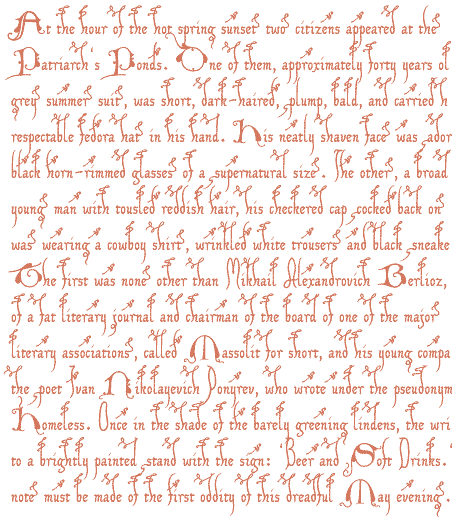 At the hour of the hot spring sunset two citizens appeared at the
Patriarch's Ponds. One of them, approximately forty years ol
grey summer suit, was short, dark-haired, plump, bald, and carried h
respectable fedora hat in his hand. His neatly shaven face was ador
black horn-rimmed glasses of a supernatural size. The other, a broad
young man with tousled reddish hair, his checkered cap cocked back on
was wearing a cowboy shirt, wrinkled white trousers and black sneake
The first was none other than Mikhail Alexandrovich Berlioz,
of a fat literary journal and chairman of the board of one of the major
literary associations, called Massolit for short, and his young compa
the poet Ivan Nikolayevich Ponyrev, who wrote under the pseudonym
Homeless. Once in the shade of the barely greening lindens, the wri
to a brightly painted stand with the sign: 'Beer and Soft Drinks.'
note must be made of the first oddity of this dreadful May evening.